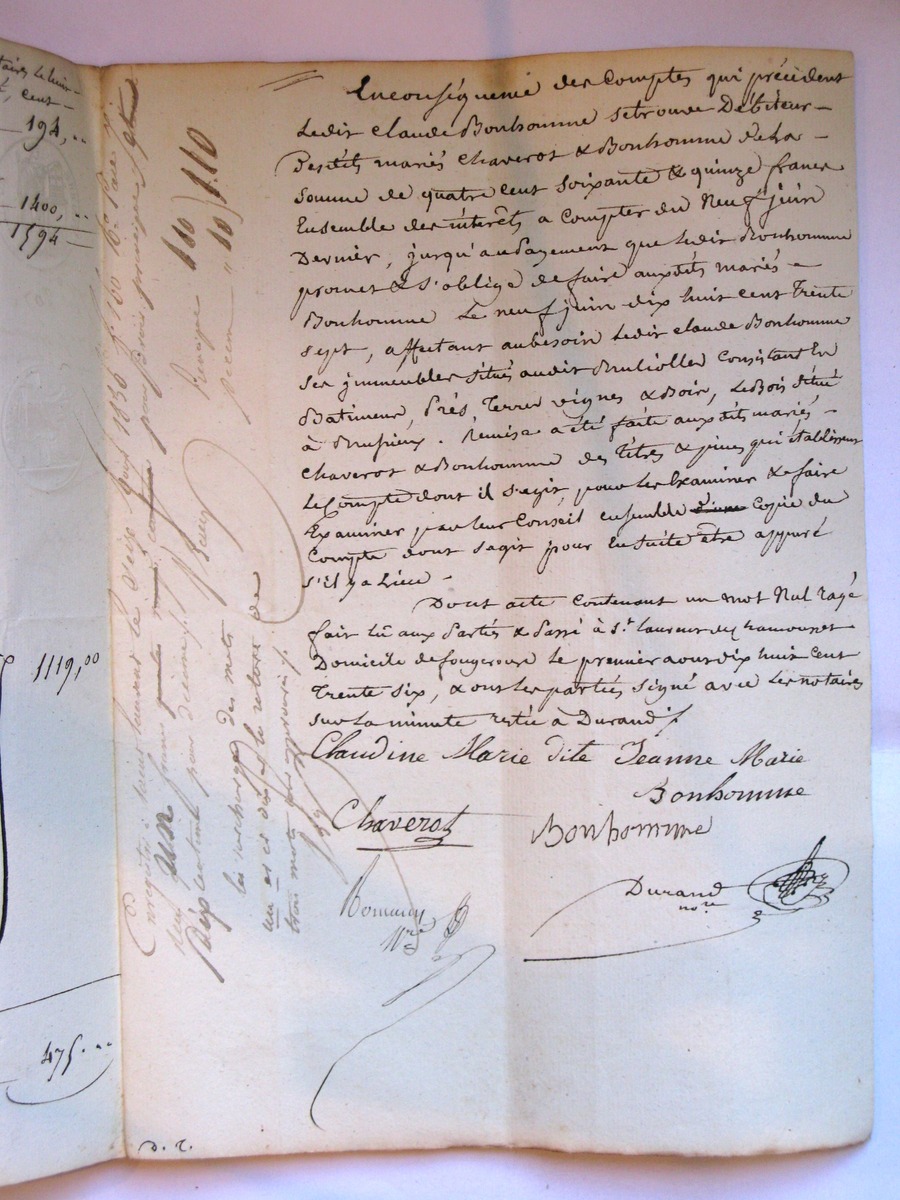 taires le huit
cent
194, ..
1400, ..
1594
1119,00
475. ..
En conséquence des Comptes qui précèdent
Ledit Claude Bonhomme se trouve Débiteur
Desdits mariés Chaverot & Bonhomme de La
Somme de quatre cent Soixante & quinze francs
Ensemble des intérêts a Compter du Neuf juin
Dernier, jusqu'au payement que Ledit Bonhomme
promet & s'oblige de faire auxdits mariés
Bonhomme Le neuf juin dix huit cent Trente
sept, affectant au besoin Ledit Claude Bonhomme
Ses jmmeubles situés audit Brulioller Consistant En
Batiment, Prés, Terres vignes & Bois, Le Bois situé
à Brusieux. Remise a été faite auxdits mariés
Chaverot & Bonhomme des Titres & pièces qui établissent
Le Compte dont il s'agit, pour les Examiner & faire
Examiner par leur Conseil ensemble Copie du
Compte dont s'agit pour Ensuite être appuré
s'il y a Lieu.
Dont acte Contenant un mot Nul rayé
fait Lû aux Parties & Passé à St. Laurent de Chamousset
Domicile de fougerouse Le premier aout dix huit Cent
Trente six, & ont les parties signé avec Les notaires
sur La minute restée à Durand
Claudine Marie dite Jeanne Marie
Bonhomme
Chaverot
Bonhomme
Durand
nore
Nre
Enregistré à Saint Laurent le Seize Août 1836 f° 160
Dix centimes pour décime
Principe 100
Décime 10
1.10
la surcharge des mots
un et de le retard de
trois mots
D. R.